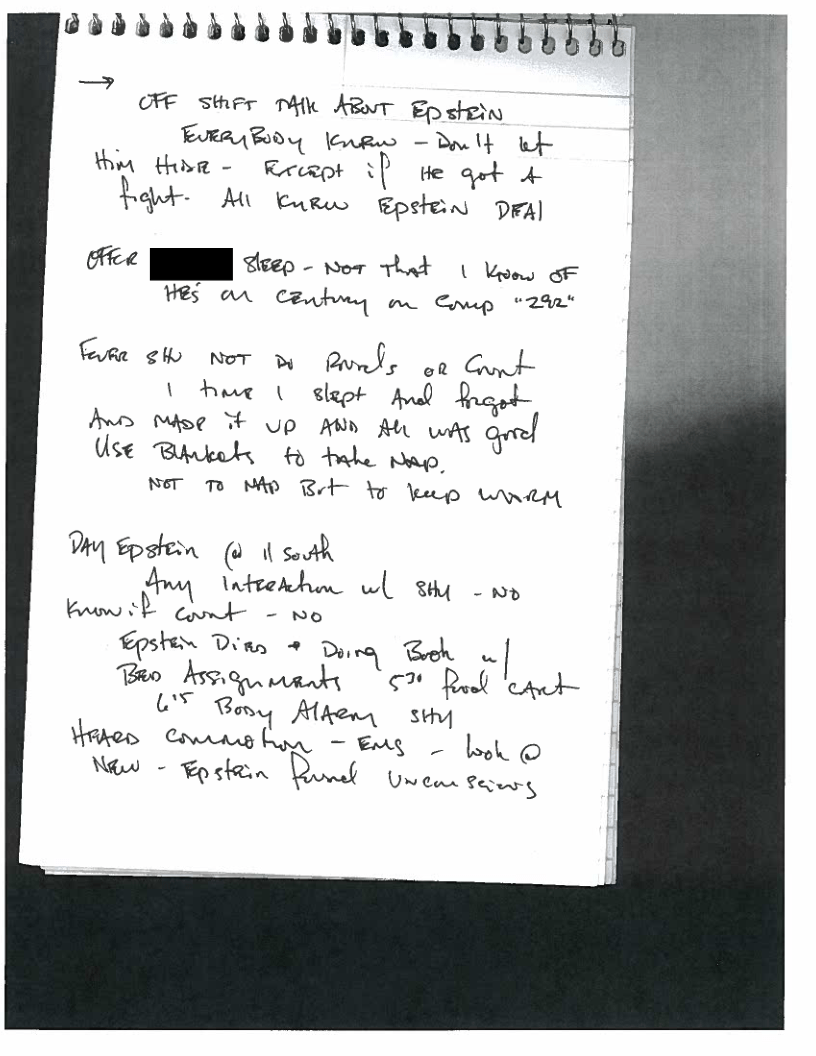 →
OFF SHIFT TALK ABOUT EpstEiN
EVERYBODY KNEW - Don't let
Him HIDE - Except if He got A
fight. All KNEW EpstEiN DEAl
OFFcR SlEEp - NOT that I know OF
HE's on CENtury on Comp "292"
EVER SHU NOT Do Rounds OR Count
1 time I slept And forgot
AND MADE it UP AND All WAS good
USE BlANkets to take NAp.
NOT TO NAP But to keep WARM
DAY EpstEiN @ 11 South
Any IntEraction w/ SHU - NO
Know if count - NO
EpstEiN DiED + Doing Book w/
BED AssignmENts 5³⁰ food cArt
6¹⁵ BODY AlARM SHU
HEARD commotion - EMS - look @
NEW - EpstEiN found UNconscious